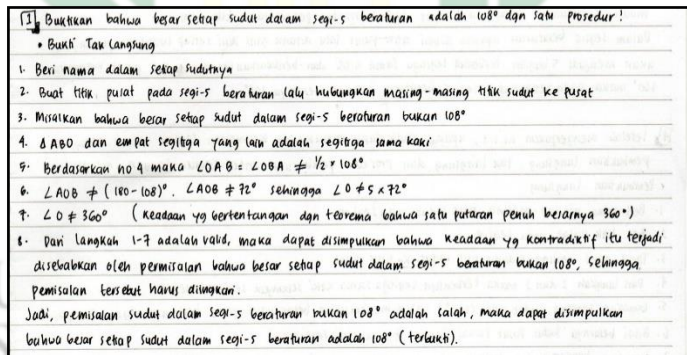 1. Buktikan bahwa besar setiap sudut dalam segi-5 beraturan adalah 108° dgn satu prosedur!
• Bukti Tak Langsung
1. Beri nama dalam setiap sudutnya
2. Buat titik pusat pada segi-5 beraturan lalu hubungkan masing-masing titik sudut ke pusat
3. Misalkan bahwa besar setiap sudut dalam segi-5 beraturan bukan 108°
4. Δ ABO dan empat segitiga yang lain adalah segitiga sama kaki
5. Berdasarkan no 4 maka ∠OAB = ∠OBA ≠ 1/2 × 108°
6. ∠AOB ≠ (180-108)°. ∠AOB ≠ 72° sehingga ∠O ≠ 5 × 72°
7. ∠O ≠ 360° (Keadaan yg bertentangan dgn teorema bahwa satu putaran penuh besarnya 360°)
8. Dari langkah 1-7 adalah valid, maka dapat disimpulkan bahwa keadaan yg kontradiktif itu terjadi
disebabkan oleh permisalan bahwa besar setiap sudut dalam segi-5 beraturan bukan 108°, Sehingga
pemisalan tersebut harus diingkari.
Jadi, pemisalan sudut dalam segi-5 beraturan bukan 108° adalah salah, maka dapat disimpulkan
bahwa besar setiap sudut dalam segi-5 beraturan adalah 108° (terbukti).